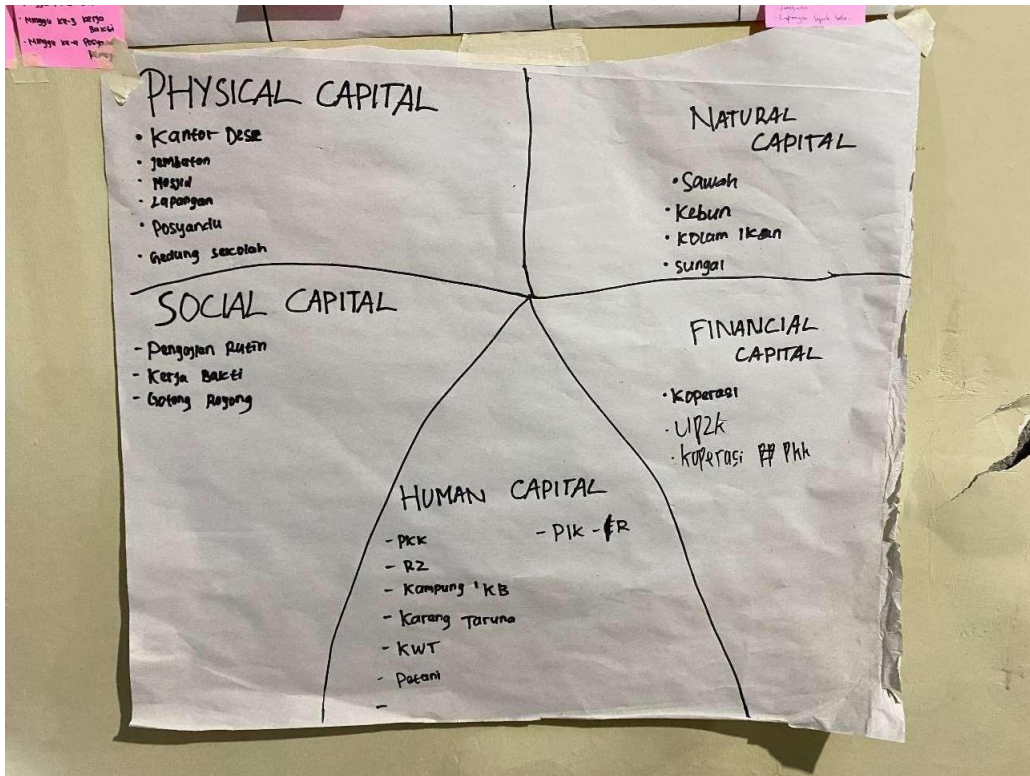 Minggu ke-3 Kerja
Bakti
Minggu ke-4 Posya
Lapangan Sepak bola.
PHYSICAL CAPITAL
• Kantor Desa
• Jembatan
• Masjid
• Lapangan
• Posyandu
• Gedung sekolah
NATURAL
CAPITAL
• Sawah
• Kebun
• Kolam Ikan
• Sungai
SOCIAL CAPITAL
- Pengajian Rutin
- Kerja Bakti
- Gotong Royong
FINANCIAL
CAPITAL
• Koperasi
• UP2K
• Koperasi PKK
HUMAN CAPITAL
- PKK
- RZ
- Kampung KB
- Karang Taruna
- KWT
- Petani
-
- PIK - R